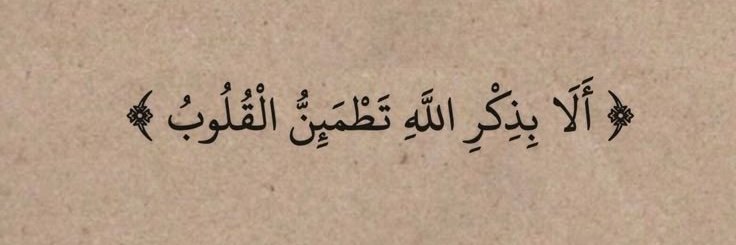 ﴿ أَلَا بِذِكْرِ اللَّهِ تَطْمَئِنُّ الْقُلُوبُ ﴾